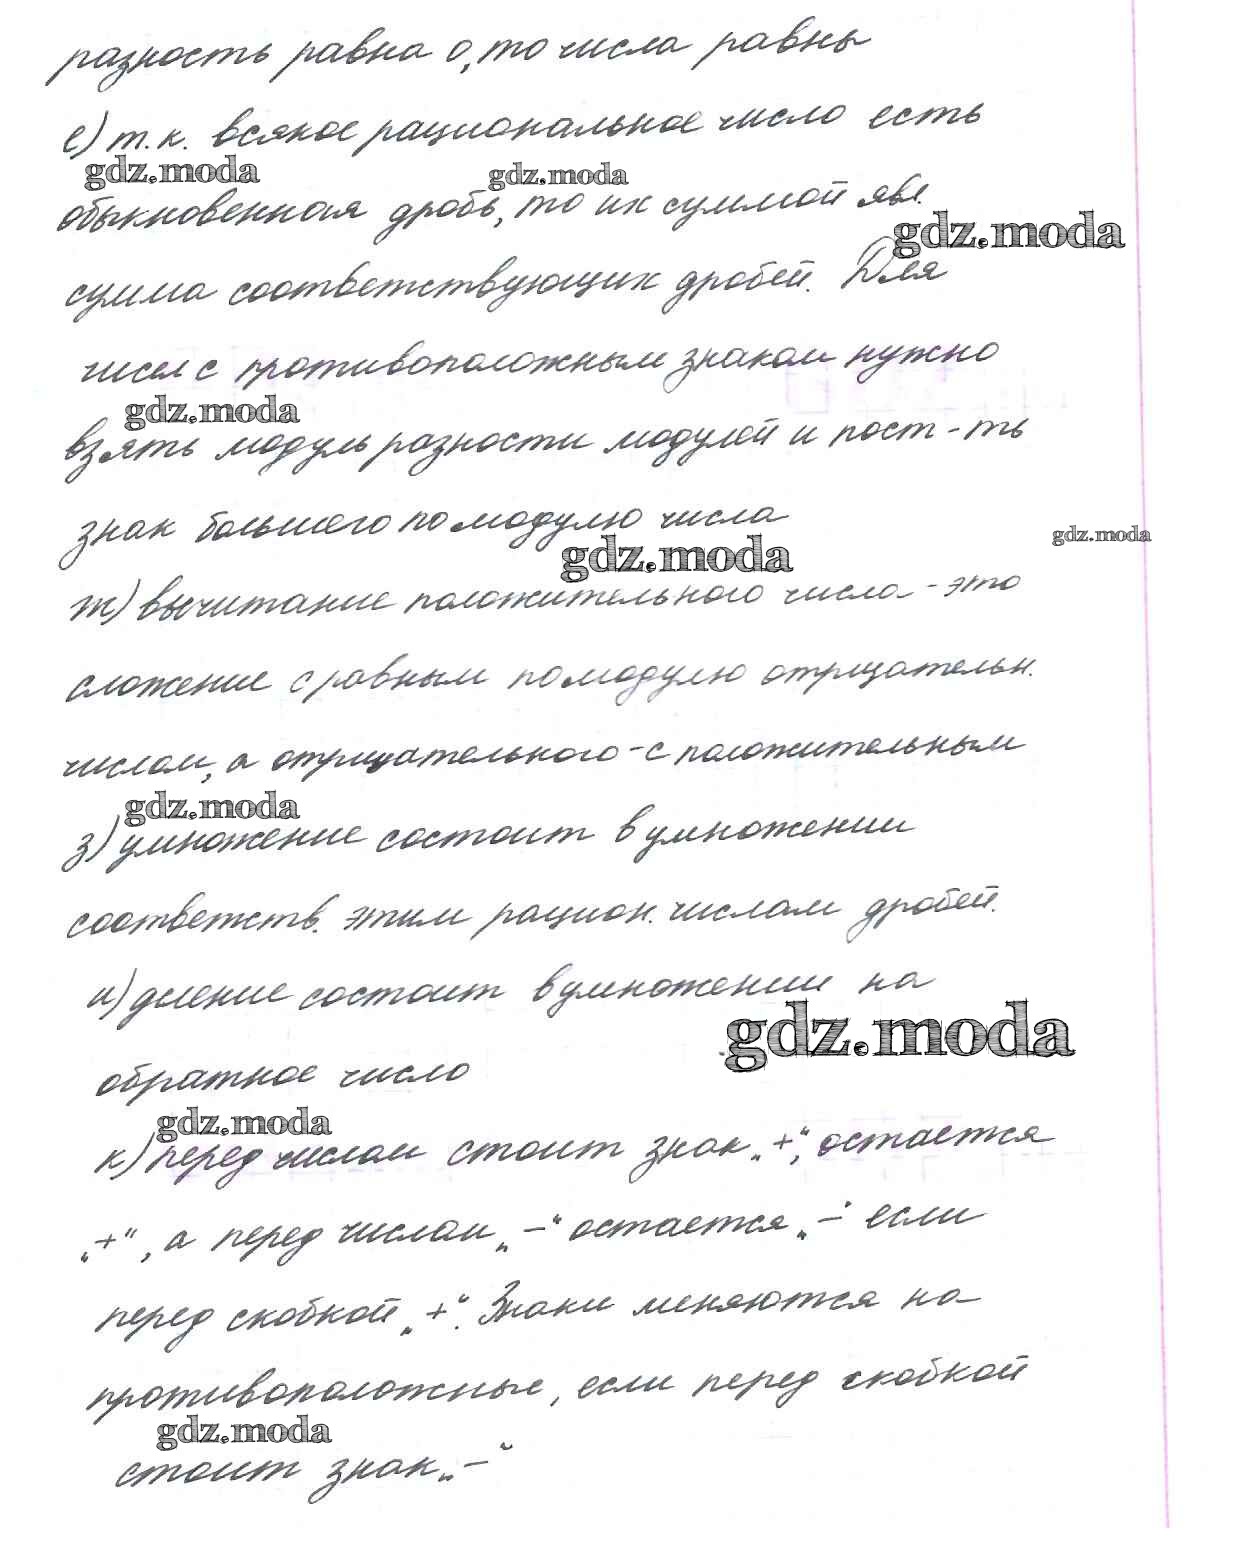 разность равна 0, то числа равны
е) т.к. всякое рациональное число есть
gdz.moda gdz.moda
обыкновенная дробь, то их суммой явл.
gdz.moda
сумма соответствующих дробей. Для
чисел с противоположным знаком нужно
gdz.moda
взять модуль разности модулей и пост-ть
знак большего по модулю числа
gdz.moda gdz.moda
ж) вычитание положительного числа - это
сложение с равным по модулю отрицательн.
числом, а отрицательного - с положительным
gdz.moda
з) умножение состоит в умножении
соответств. этим рацион. числам дробей.
и) деление состоит в умножении на
gdz.moda
обратное число
gdz.moda
к) перед числом стоит знак „+“, остается
„+“, а перед числом „-“ остается „-“ если
перед скобкой „+“. Знаки меняются на
противоположные, если перед скобкой
gdz.moda
стоит знак „-“